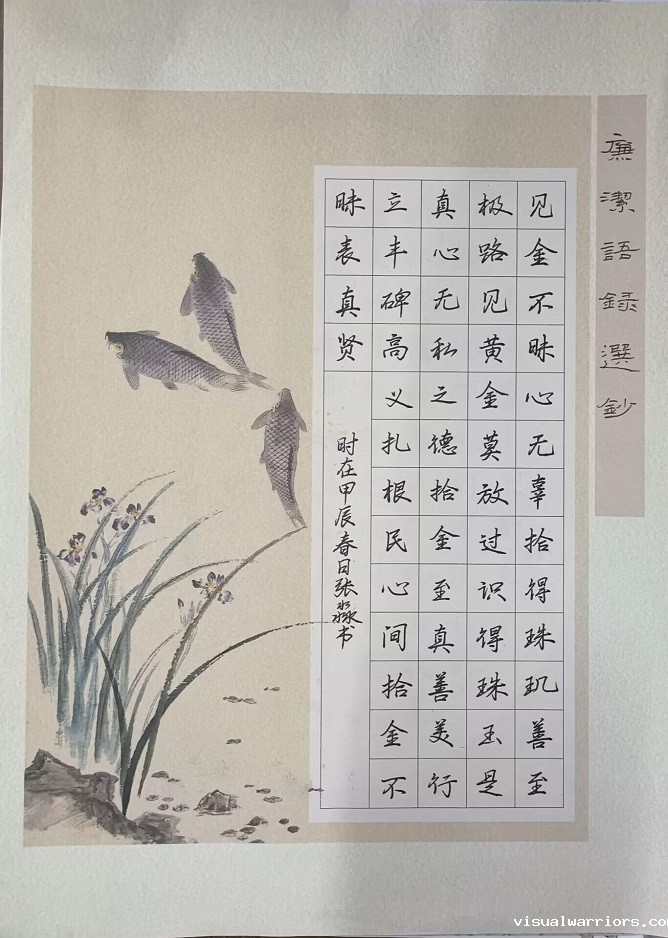 廉潔語録選鈔
见金不昧心无辜拾得珠玑善至
极路见黄金莫放过识得珠玉是
真心无私之德拾金至真善美行
立丰碑高义扎根民心间拾金不
昧表真贤
时在甲辰春日张淼书
visualwarriors.co